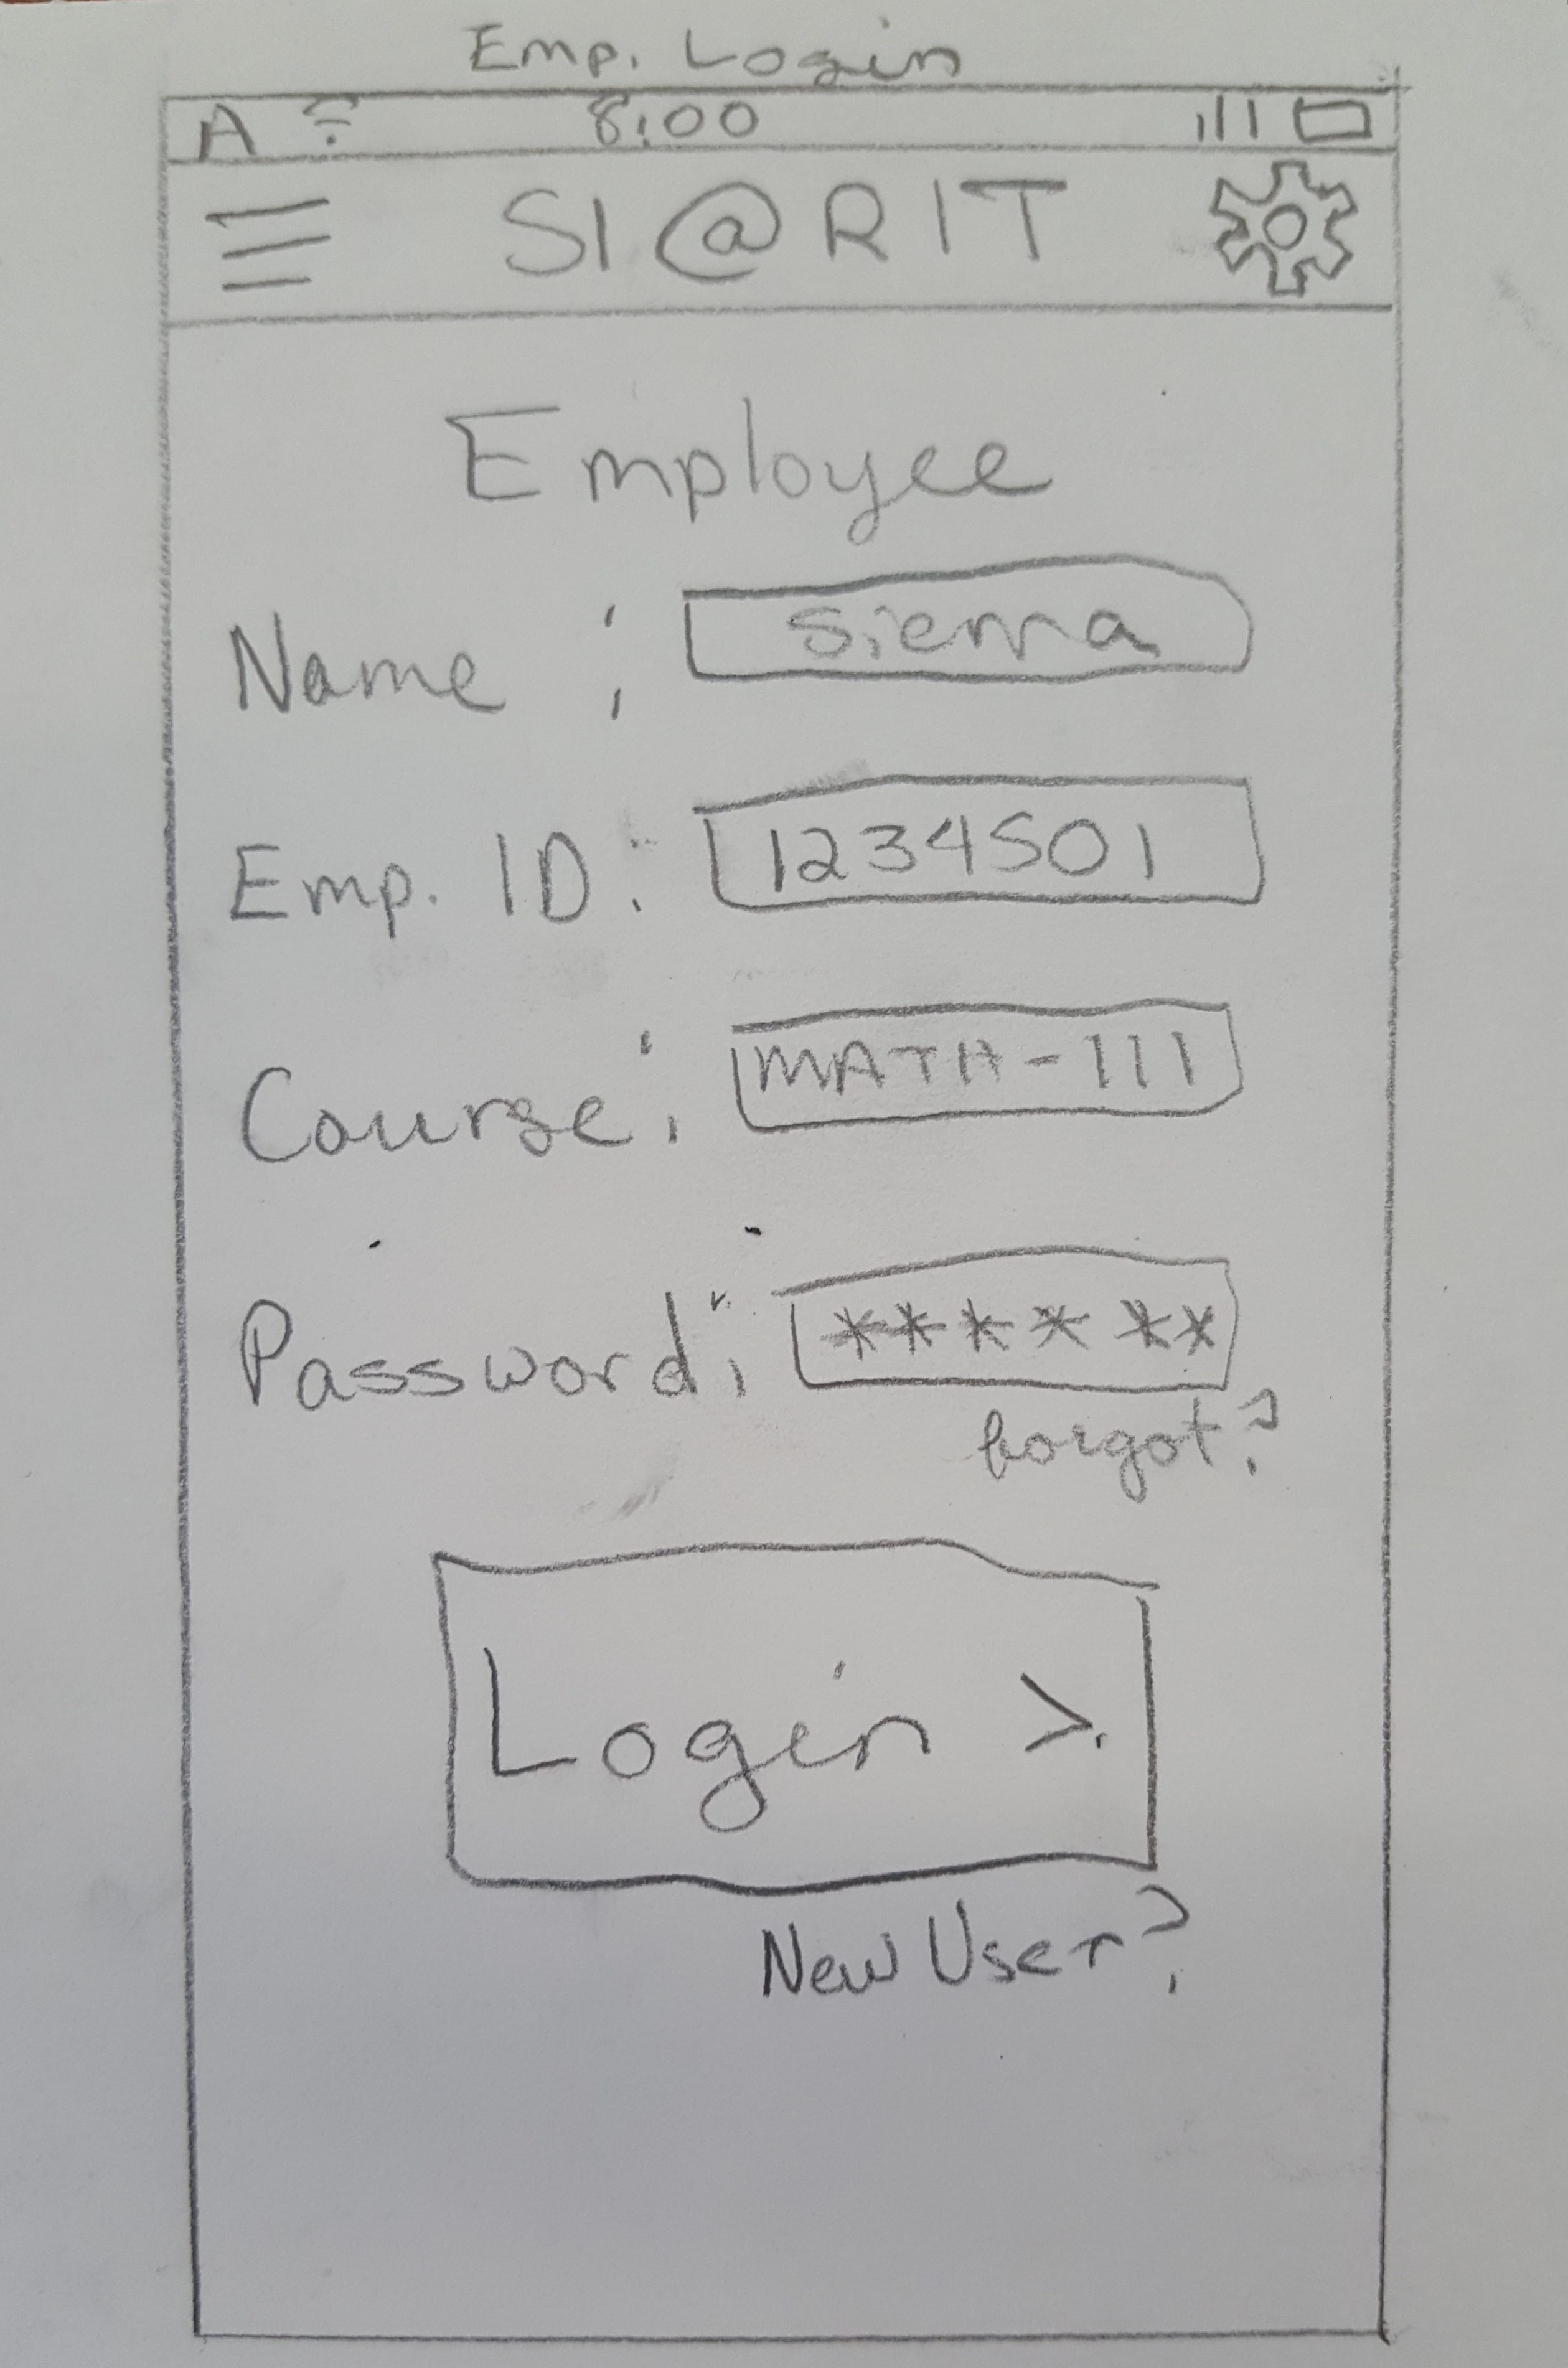 Emp. Login
A 8:00
SI@RIT
Employee
Name : Sierra
Emp. ID: 1234501
Course: MATH-111
Password: ******
forgot?
Login >
New User?